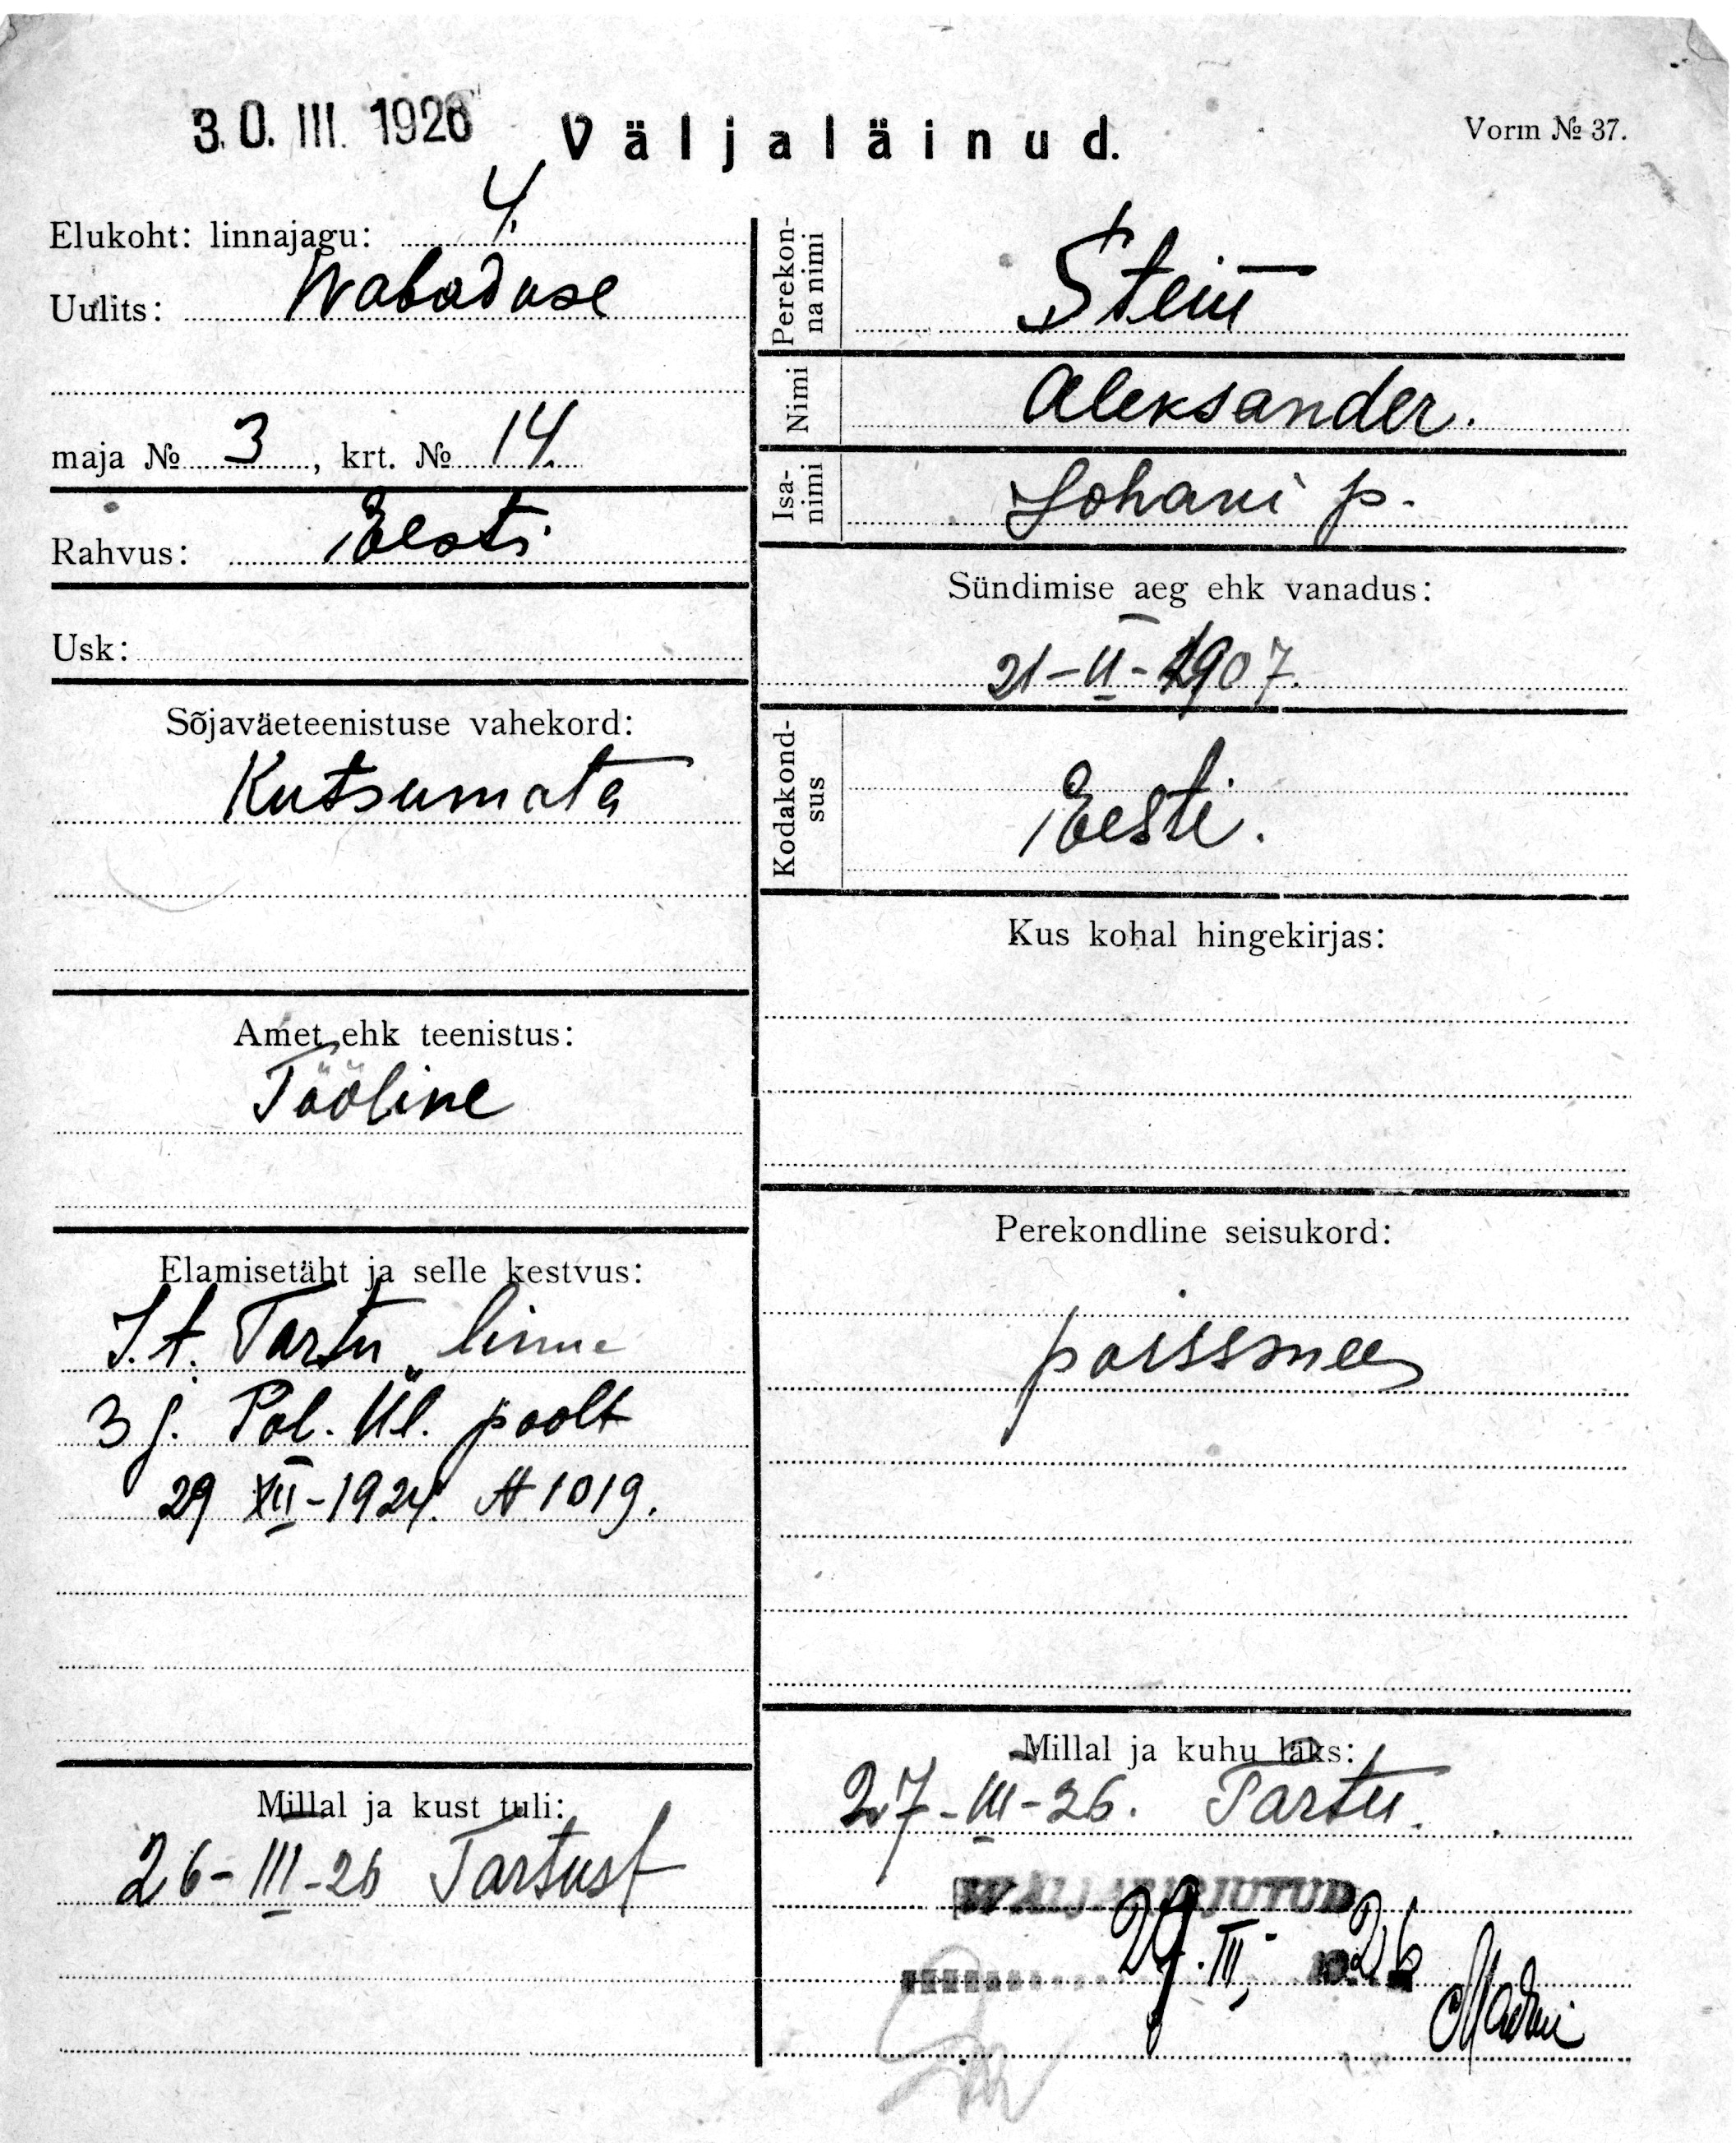 30. III. 1926
Väljaläinud.
Vorm № 37.
Elukoht: linnajagu: 4.
Uulits: Wabaduse
maja № 3, krt. № 14.
Rahvus: Eesti
Usk:
Sõjaväeteenistuse vahekord:
Kutsumata
Amet ehk teenistus:
Tööline
Elamisetäht ja selle kestvus:
I.t. Tartu linna
3 j. Pol. Ül. poolt
29 XII-1924. № 1019.
Millal ja kust tuli:
26-III-26 Tartust
Perekonna nimi
Stein
Nimi
Aleksander.
Isanimi
Johani p.
Sündimise aeg ehk vanadus:
21-II-1907.
Kodakondsus
Eesti.
Kus kohal hingekirjas:
Perekondline seisukord:
poissmees
Millal ja kuhu läks:
27-III-26. Tartu.
WÄLJAKIRJUTUD
29. III 1926